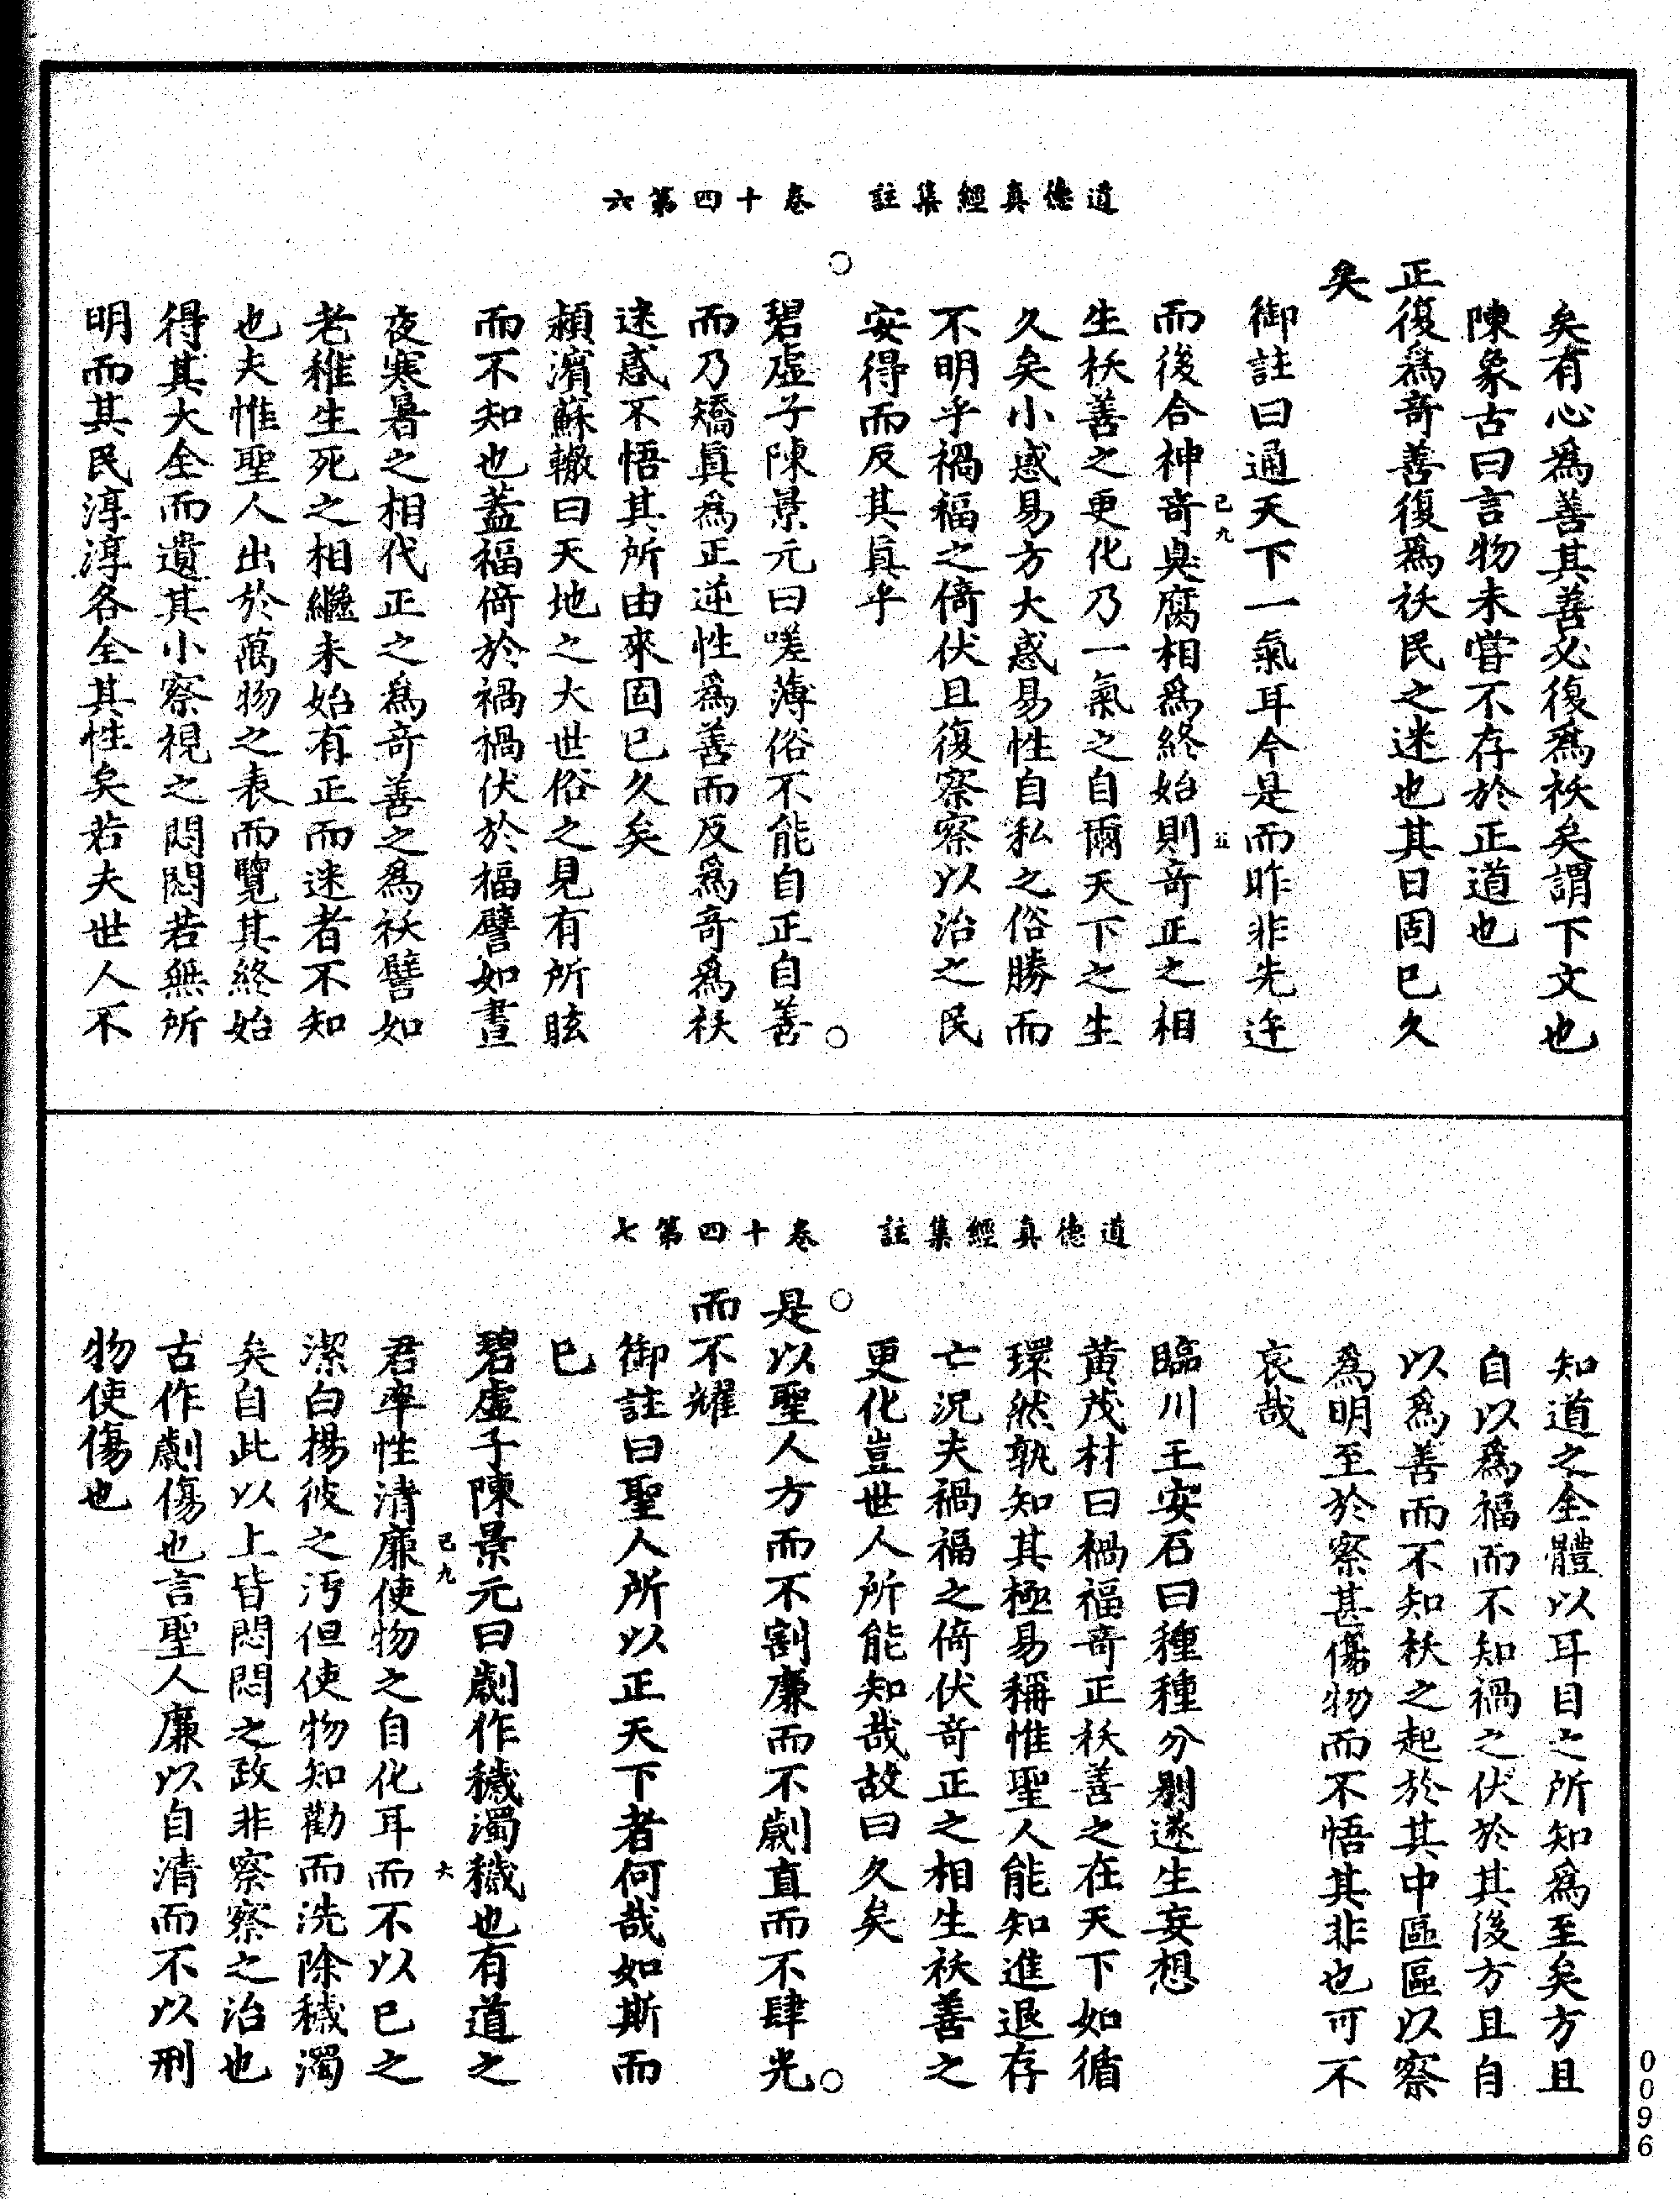 道德真經集註　卷十四第六
矣有心爲善其善必復爲祅矣謂下文也
陳象古曰言物未嘗不存於正道也
正復爲奇善復爲祅民之迷也其日固已久
矣
御註曰通天下一氣耳今是而昨非先迕
而後合神奇臭腐相爲終始則奇正之相
己九
五
生祅善之更化乃一氣之自爾天下之生
久矣小惑易方大惑易性自私之俗勝而
不明乎禍福之倚伏且復察察以治之民
安得而反其眞乎
碧虛子陳景元曰嗟薄俗不能自正自善
而乃矯眞爲正逆性爲善而反爲奇爲祅
迷惑不悟其所由來固已久矣
潁濱蘇轍曰天地之大世俗之見有所眩
而不知也蓋福倚於禍禍伏於福譬如晝
夜寒暑之相代正之爲奇善之爲祅譬如
老稚生死之相繼未始有正而迷者不知
也夫惟聖人出於萬物之表而覽其終始
得其大全而遺其小察視之悶悶若無所
明而其民淳淳各全其性矣若夫世人不
道德真經集註　卷十四第七
知道之全體以耳目之所知爲至矣方且
自以爲福而不知禍之伏於其後方且自
以爲善而不知祅之起於其中區區以察
爲明至於察甚傷物而不悟其非也可不
哀哉
臨川王安石曰種種分別遂生妄想
黄茂材曰禍福奇正祅善之在天下如循
環然孰知其極易稱惟聖人能知進退存
亡況夫禍福之倚伏奇正之相生祅善之
更化豈世人所能知哉故曰久矣
是以聖人方而不割廉而不劌直而不肆光
而不耀
御註曰聖人所以正天下者何哉如斯而
已
碧虛子陳景元曰劌作穢濁穢也有道之
己九
六
君率性清廉使物之自化耳而不以已之
潔白揚彼之汚但使物知勸而洗除穢濁
矣自此以上皆悶悶之政非察察之治也
古作劌傷也言聖人廉以自清而不以刑
物使傷也
0096